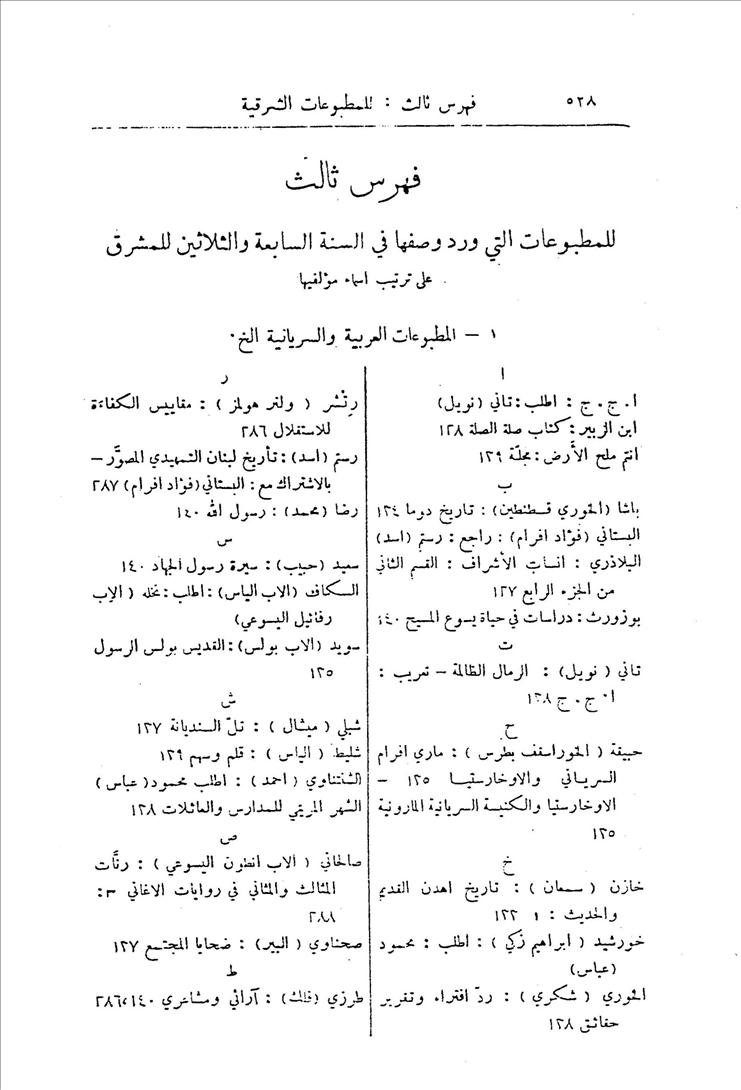 ٥٢٨ فهرس ثالث : للمطبوعات الشرقية
فهرس ثالث
للمطبوعات التي ورد وصفها في السنة السابعة والثلاثين للمشرق
على ترتيب اسماء مؤلفيها
١ – المطبوعات العربية والسريانية الخ.
ا
ا. ج. ج : اطلب : تاني (نويل)
ابن الزبير : كتاب صلة الصلة ١٢٨
انتم ملح الأرض : مجلّة ١٢٩
ب
باشا (الخوري قسطنطين) : تاريخ دوما ١٣٤
البستاني (فؤاد افرام) : راجع : رستم (اسد)
البلاذري : انساب الأشراف : القسم الثاني
من الجزء الرابع ١٢٧
بوزورث : دراسات في حياة يسوع المسيح ١٤٠
ت
تاني ( نويل) : الرمال الظالمة – تعريب :
ا. ج. ج ١٢٨
ح
حبيقة ( الخوراسقف بطرس ) : ماري افرام
السرياني والاوخارستيا ١٢٥ –
الاوخارستيا والكنيسة السريانية المارونية
١٢٥
خ
خازن ( سمعان ) : تاريخ اهدن القديم
والحديث : ١ ١٣٢
خورشيد ( ابراهيم زكي ) : اطلب : محمود
(عباس)
الخوري ( شكري ) : ردّ افتراء وتقرير
حقائق ١٢٨
ر
رتشر ( ولتر هولمز ) : مقاييس الكفاءة
للاستقلال ٢٨٦
رستم (اسد) : تأريخ لبنان التمهيدي المصوّر –
بالاشتراك مع : البستاني (فؤاد افرام) ٢٨٧
رضا (محمد) : رسول الله ١٤٠
س
سعيد (حبيب) : سيرة رسول الجهاد ١٤٠
السكاف (الاب الياس) : اطلب : نخله ( الاب
رفائيل اليسوعي)
سويد (الاب بولس) : القديس بولس الرسول
١٢٥
ش
شبلي ( ميشال ) : تلّ السنديانة ١٢٧
شليط ( الياس ) : قلم وسهم ١٢٩
الشنتناوي ( احمد ) : اطلب محمود (عباس)
الشهر المريمي للمدارس والعائلات ١٢٨
ص
صالحاني ( الاب انطون اليسوعي ) : رنّات
المثالث والمثاني في روايات الاغاني ٣ :
٢٨٨
صحناوي ( البير) : ضحايا المجتمع ١٢٧
ط
طرزي (فالك) : آرائي ومشاعري ١٤٠، ٢٨٦